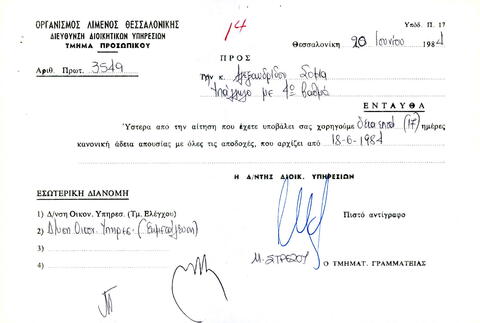 ΟΡΓΑΝΙΣΜΟΣ ΛΙΜΕΝΟΣ ΘΕΣΣΑΛΟΝΙΚΗΣ
ΔΙΕΥΘΥΝΣΗ ΔΙΟΙΚΗΤΙΚΩΝ ΥΠΗΡΕΣΙΩΝ
ΤΜΗΜΑ ΠΡΟΣΩΠΙΚΟΥ
14
Υπόδ. Π. 17
Θεσσαλονίκη 20 Ιουνίου 1984
Αριθ. Πρωτ. 3549
ΠΡΟΣ
Την κ. Αλεξανδρίδου Σοφία
Υπάλληλο με 4ο βαθμό
ΕΝΤΑΥΘΑ
Ύστερα απο την αίτηση που έχετε υποβάλει σας χορηγούμε δεκαεπτά (17) ημέρες
κανονική άδεια απουσίας με όλες τις αποδοχές, που αρχίζει από 18-6-1984
Η Δ/ΝΤΗΣ ΔΙΟΙΚ. ΥΠΗΡΕΣΙΩΝ
ΕΣΩΤΕΡΙΚΗ ΔΙΑΝΟΜΗ
1) Δ/νση Οικον. Υπηρεσ. (Τμ. Ελέγχου)
Πιστό αντίγραφο
2) Δ/νση Οικ. Υπηρεσ. (Εκμετάλλευση)
3)
4)
Μ. ΣΤΡΕΖΟΥ
Ο ΤΜΗΜΑΤ. ΓΡΑΜΜΑΤΕΙΑΣ